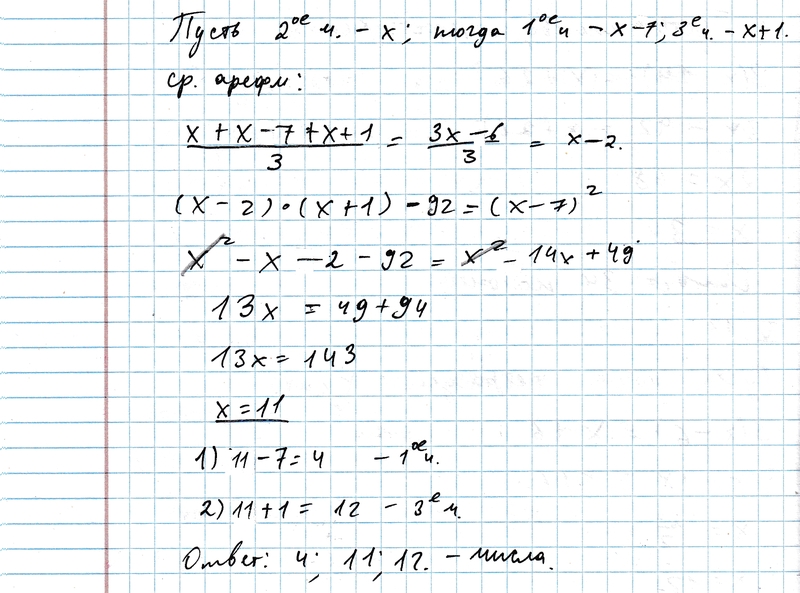 Пусть 2ое ч. - x; тогда 1ое ч - x-7; 3е ч. - x+1.
ср. арефм:
(x + x - 7 + x + 1)/3 = (3x - 6)/3 = x - 2.
(x - 2) · (x + 1) - 92 = (x - 7)²
x² - x - 2 - 92 = x² - 14x + 49
13x = 49 + 94
13x = 143
x = 11
1) 11 - 7 = 4 - 1ое ч.
2) 11 + 1 = 12 - 3е ч.
Ответ: 4; 11; 12. - числа.